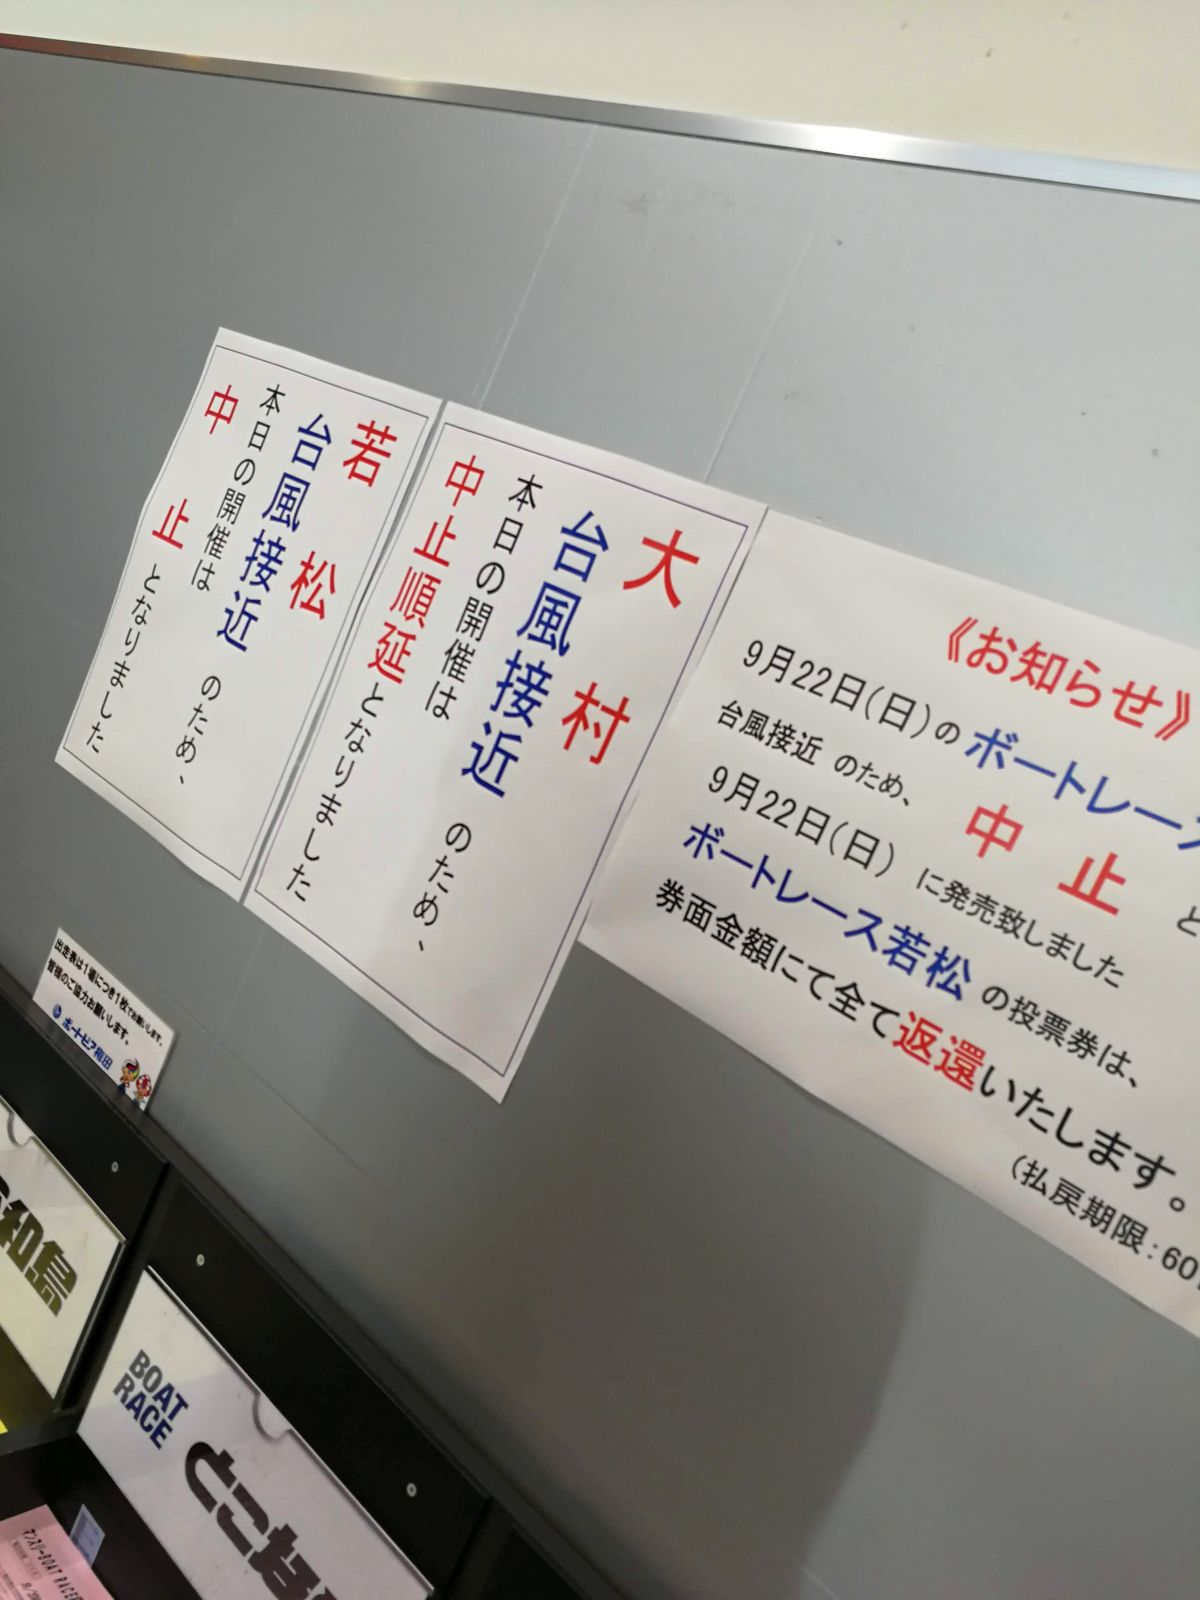 若松
台風接近のため、
本日の開催は
中止となりました
大村
台風接近のため、
本日の開催は
中止順延となりました
《お知らせ》
9月22日(日)のボートレース
台風接近のため、中止と
9月22日(日)に発売致しました
ボートレース若松の投票券は、
券面金額にて全て返還いたします。
(払戻期限:60
出走表は1場につき1枚でお願いします。
皆様のご協力お願いします。
ボートピア梅田
和島
BOAT
RACE
とこな
マンスリーBOAT RACE